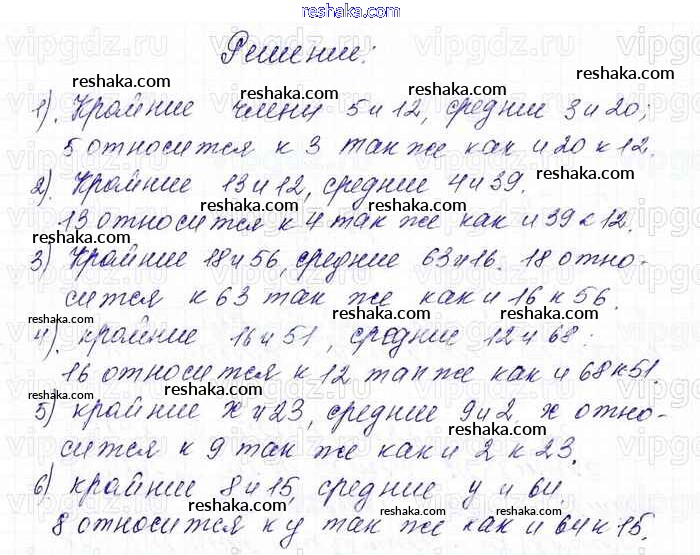 reshaka.com
Решение:
reshaka.com
reshaka.com
1). Крайние члены 5 и 12, средние 3 и 20;
reshaka.com
5 относится к 3 так же как и 20 к 12.
reshaka.com
reshaka.com
2). Крайние 13 и 12, средние 4 и 39.
reshaka.com
13 относится к 4 так же как и 39 к 12.
reshaka.com
reshaka.com
3) Крайние 18 и 56, средние 63 и 16. 18 отно-
reshaka.com
сится к 63 так же как и 16 к 56.
reshaka.com
reshaka.com
4). крайние 16 и 51, средние 12 и 68.
reshaka.com
16 относится к 12 так же как и 68 к 51.
reshaka.com
reshaka.com
5) крайние x и 23, средние 9 и 2 x отно-
reshaka.com
сится к 9 так же как и 2 к 23.
reshaka.com
reshaka.com
6) крайние 8 и 15, средние y и 64.
reshaka.com
reshaka.com
8 относится к y так же как и 64 к 15.
reshaka.com